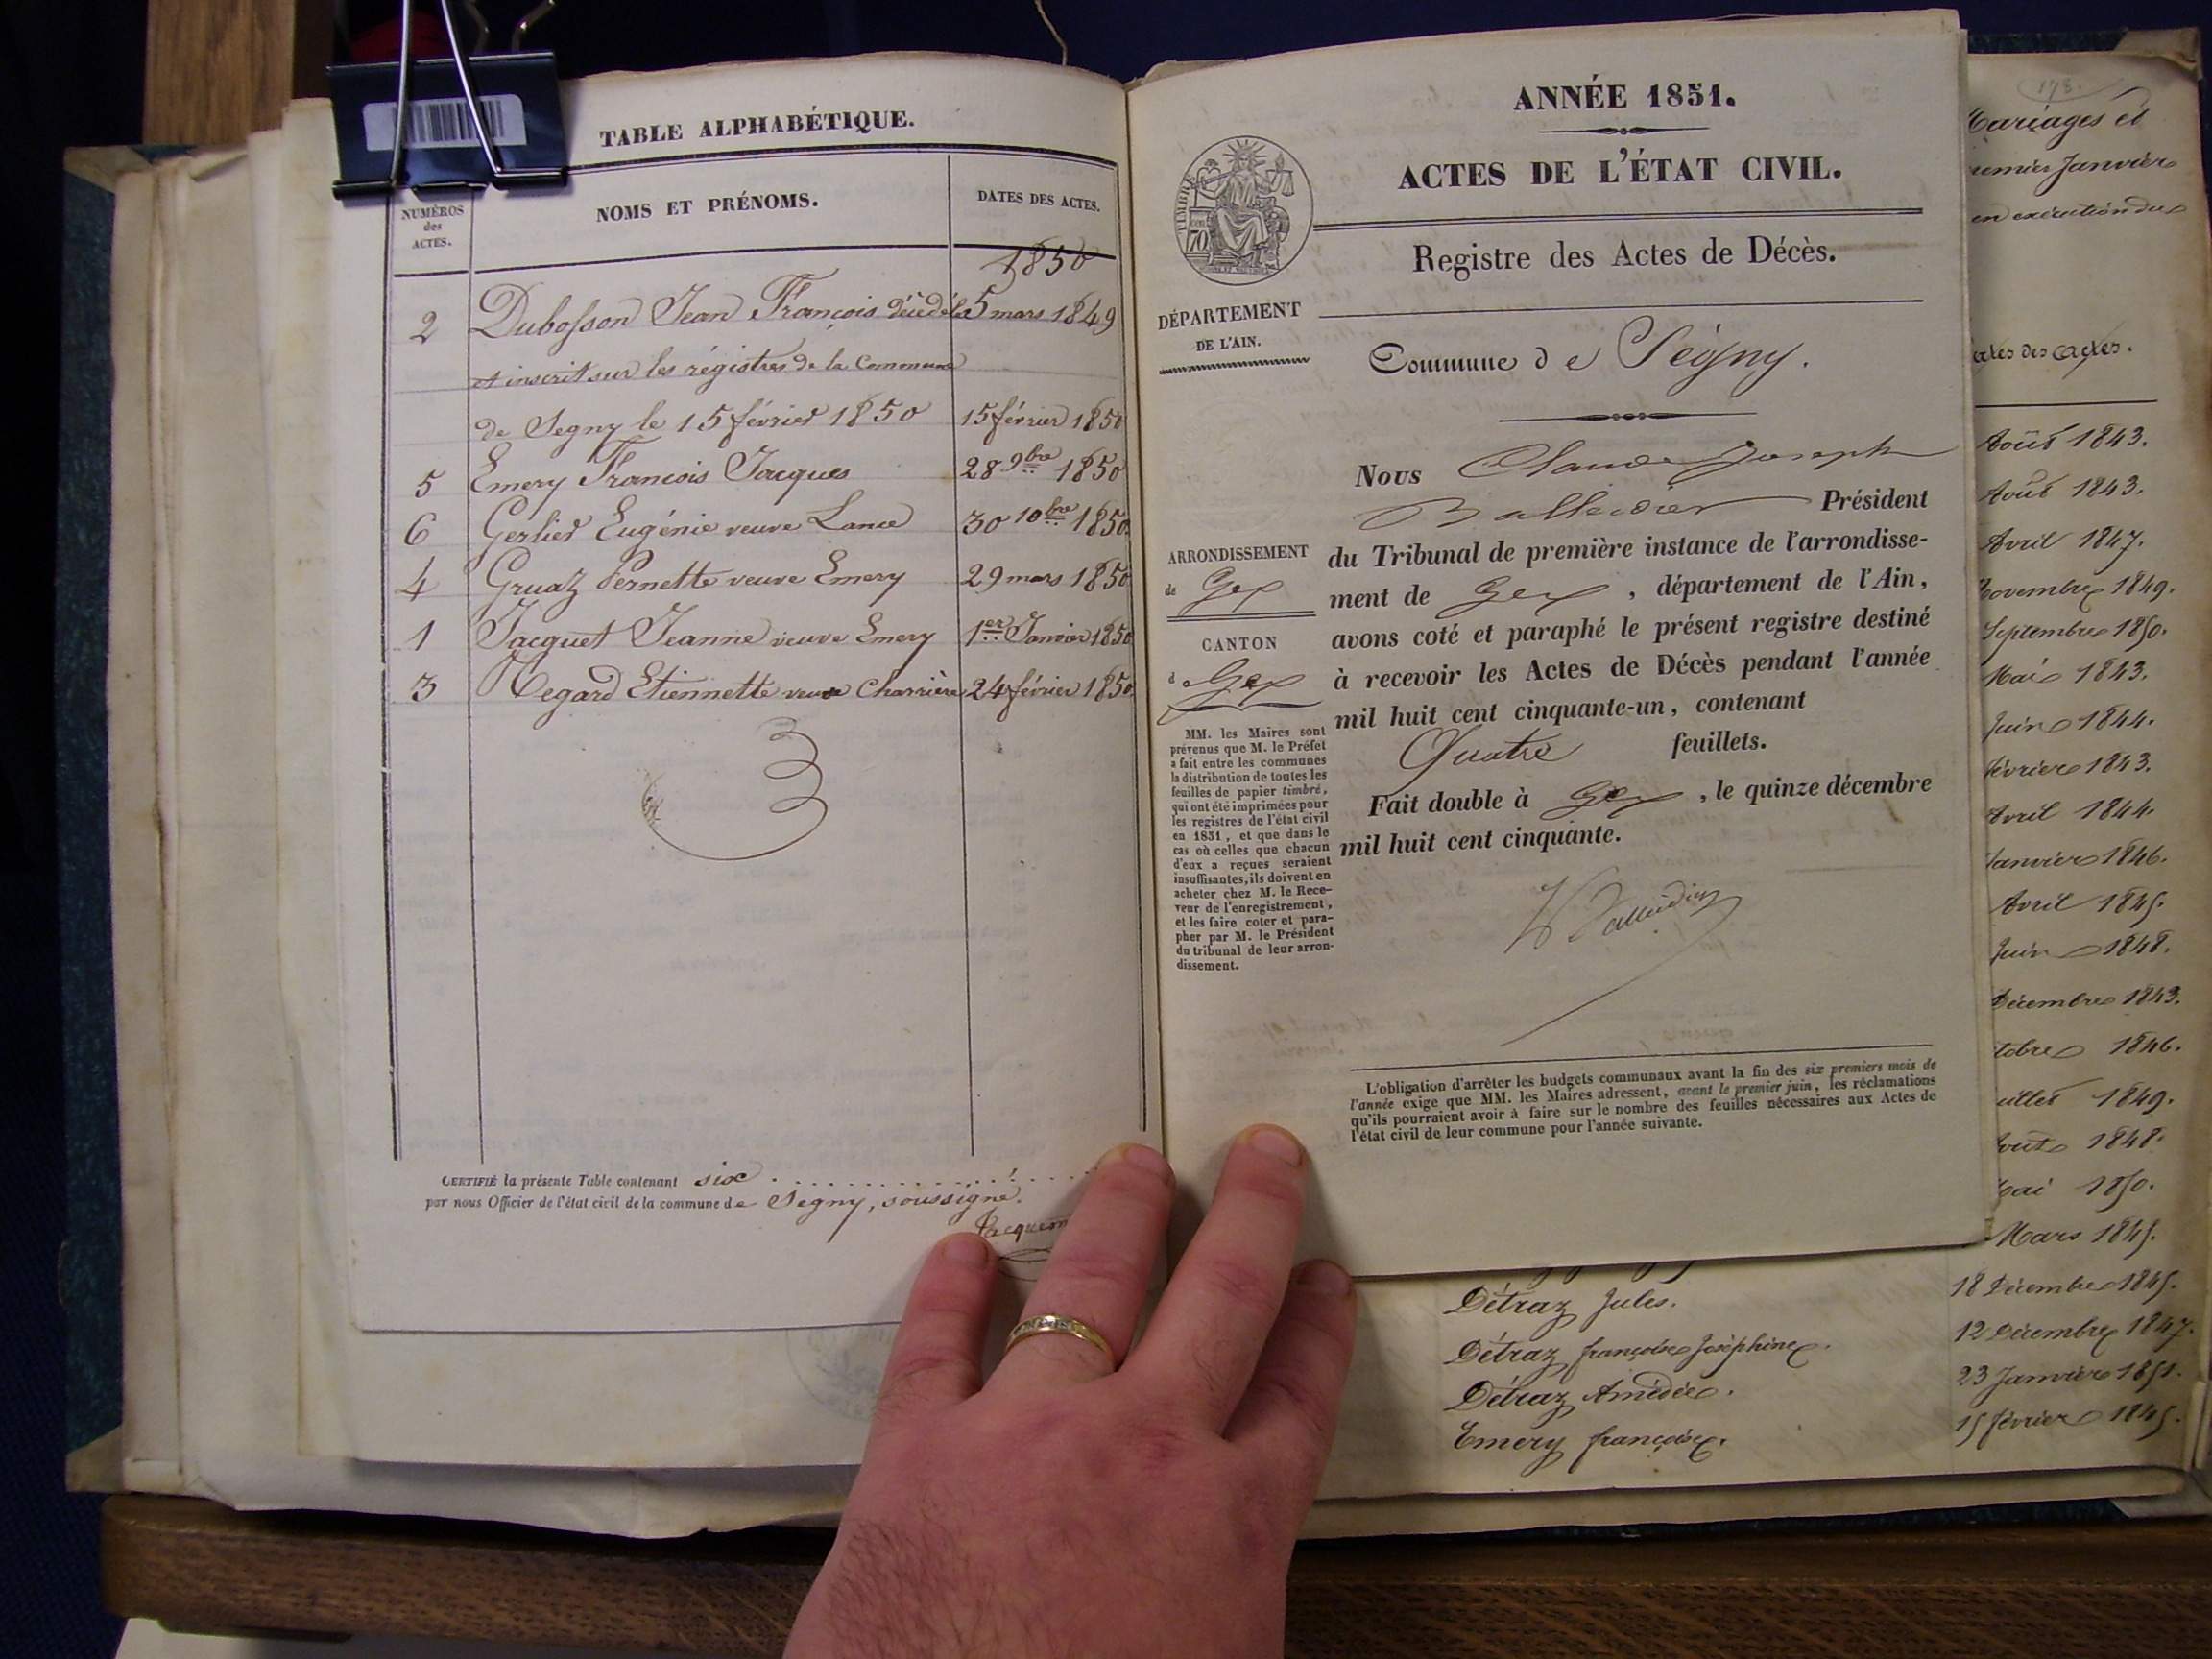 TABLE ALPHABÉTIQUE.
NUMÉROS des ACTES.
NOMS ET PRÉNOMS.
DATES DES ACTES.
1850
2 Dubosson Jean François décédé le 5 mars 1849
et inscrit sur les régistres de la Commune
de Segny le 15 février 1850 15 février 1850
5 Emery François Jacques 28 9bre 1850
6 Gerlier Eugénie veuve Lance 30 10bre 1850
4 Gruaz Pernette veuve Emery 29 mars 1850
1 Jacquet Jeanne veuve Emery 1er Janvier 1850
3 Regard Etiennette veuve Charrière 24 février 1850
CERTIFIÉ la présente Table contenant six
par nous Officier de l'état civil de la commune de Segny, soussigné.
ANNÉE 1851.
ACTES DE L'ÉTAT CIVIL.
TIMBRE
70
Registre des Actes de Décès.
DÉPARTEMENT
DE L'AIN.
Commune de Ségny.
Nous Claude Joseph
Balleidier Président
du Tribunal de première instance de l'arrondisse-
ment de Gex, département de l'Ain,
avons coté et paraphé le présent registre destiné
à recevoir les Actes de Décès pendant l'année
mil huit cent cinquante-un, contenant
Quatre feuillets.
Fait double à Gex, le quinze décembre
mil huit cent cinquante.
ARRONDISSEMENT
de Gex
CANTON
de Gex
MM. les Maires sont
prévenus que M. le Préfet
a fait entre les communes
la distribution de toutes les
feuilles de papier timbré,
qui ont été imprimées pour
les registres de l'état civil
en 1851, et que dans le
cas où celles que chacun
d'eux a reçues seraient
insuffisantes, ils doivent en
acheter chez M. le Rece-
veur de l'enregistrement,
et les faire coter et para-
pher par M. le Président
du tribunal de leur arron-
dissement.
L'obligation d'arrêter les budgets communaux avant la fin des six premiers mois de
l'année exige que MM. les Maires adressent, avant le premier juin, les réclamations
qu'ils pourraient avoir à faire sur le nombre des feuilles nécessaires aux Actes de
l'état civil de leur commune pour l'année suivante.
178.
Mariages et
premier Janvier
en exécution du
dates des actes.
Août 1843.
Août 1843.
Avril 1847.
Novembre 1849.
Septembre 1850.
Mai 1843.
Juin 1844.
février 1843.
Avril 1844.
Janvier 1846.
Avril 1845.
Juin 1848.
Décembre 1843.
tobre 1846.
uillet 1849.
Août 1848.
Mai 1850.
Mars 1845.
Détraz Jules. 18 Décembre 1845.
Détraz françoise Joséphine. 12 Décembre 1847.
Détraz Amédée. 23 Janvier 1851.
Emery françoise. 15 février 1845.